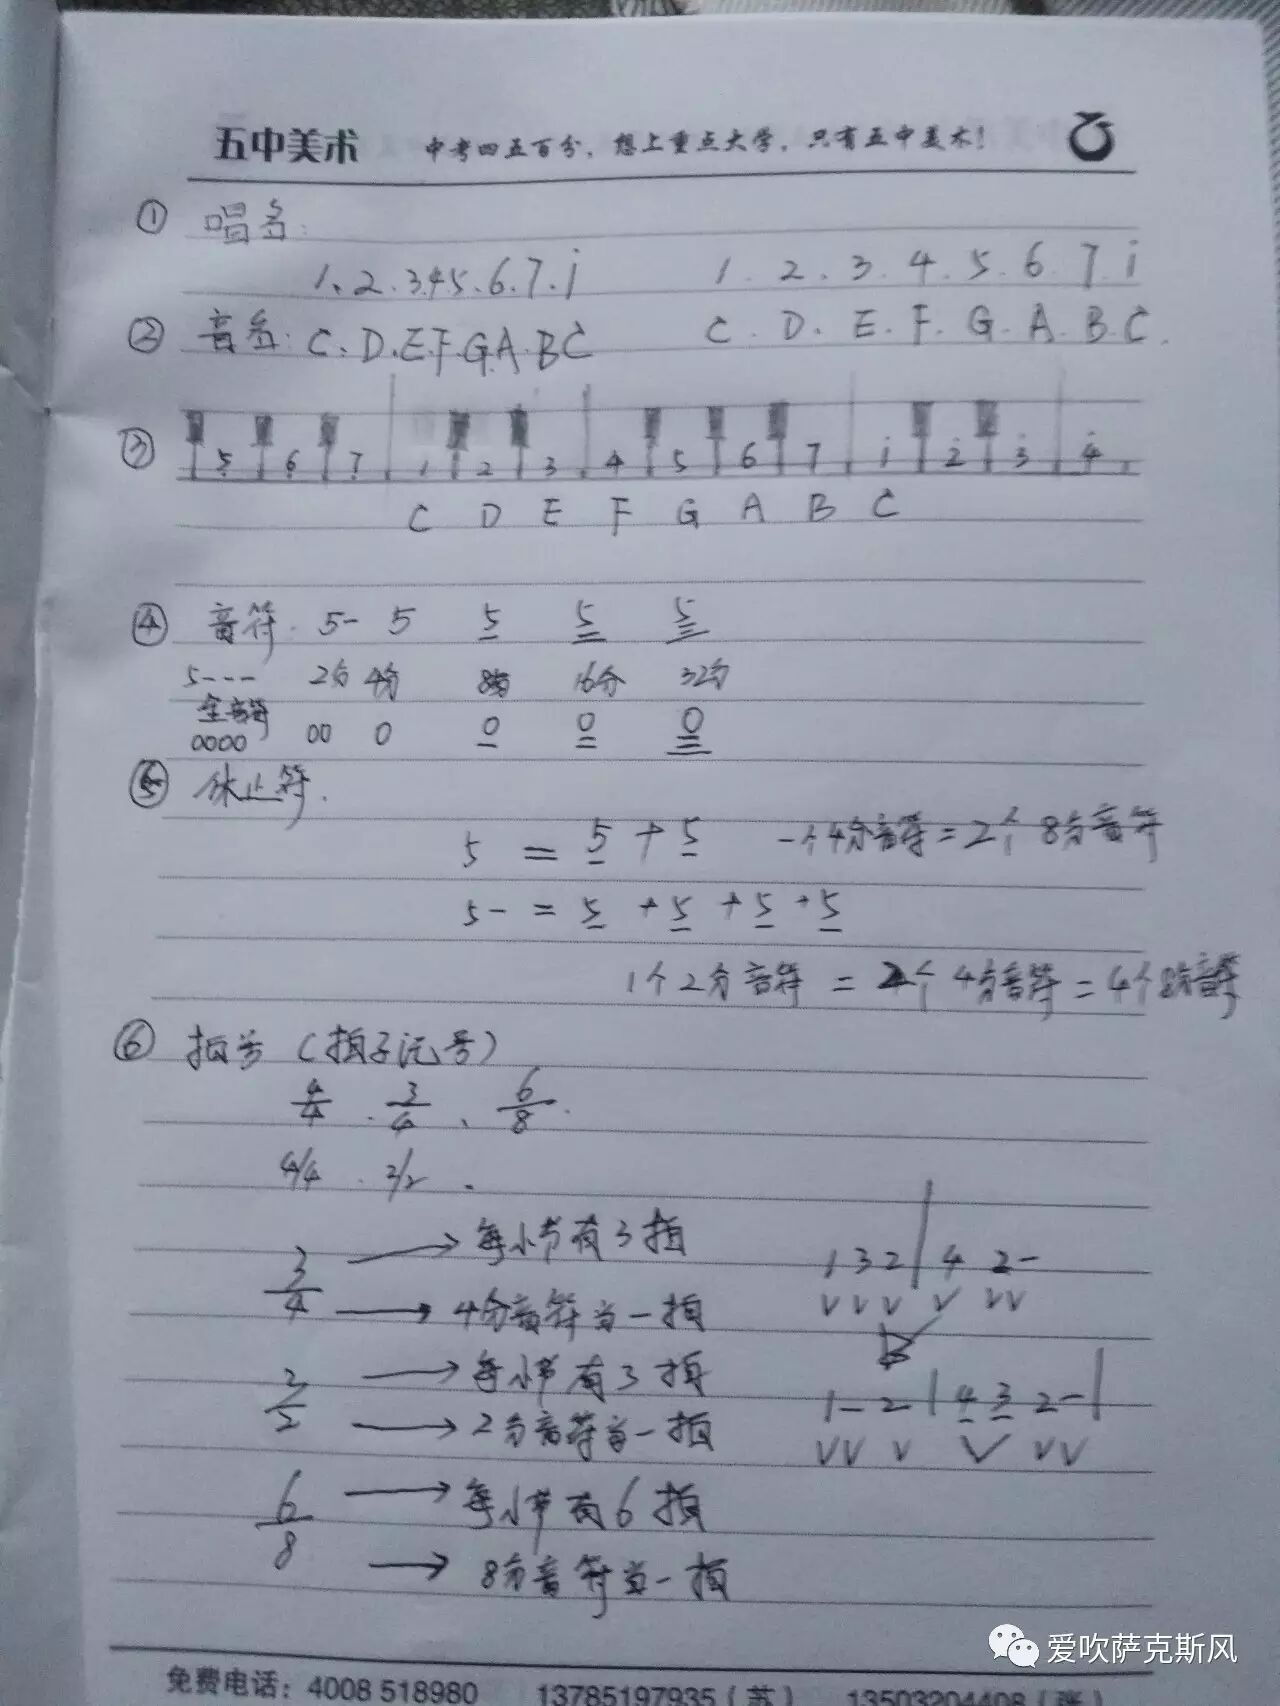 五中美术 中考四五百分，想上重点大学，只有五中美术！
① 唱名：
1.2.3.4.5.6.7.i 1.2.3.4.5.6.7.i
② 音名：C.D.E.F.G.A.B.C C.D.E.F.G.A.B.C.
③ 5 6 7 1 2 3 4 5 6 7 i 2̇ 3̇ 4̇
C D E F G A B C
④ 音符. 5- 5 5̲ 5̳ 5̳̲
5--- 2分 4分 8分 16分 32分
全音符
0000 00 0 0̲ 0̳ 0̳̲
⑤ 休止符.
5 = 5̲ + 5̲ 一个4分音符=2个8分音符
5- = 5̲ + 5̲ + 5̲ + 5̲
1个2分音符 = 2个4分音符 = 4个8分音符
⑥ 拍号（拍子记号）
4/4、3/4、6/8.
4/4.2/2.
3/4 → 每小节有3拍 1 3 2 | 4 2-
→ 4分音符当一拍 V V V V VV
→ 每小节有3拍 1-2 | 4̲ 3̲ 2- |
→ 2分音符当一拍 VV V V VV
6/8 → 每小节有6拍
→ 8分音符当一拍
免费电话：4008 518980 13785197935（苏） 13503204408（张）
爱吹萨克斯风